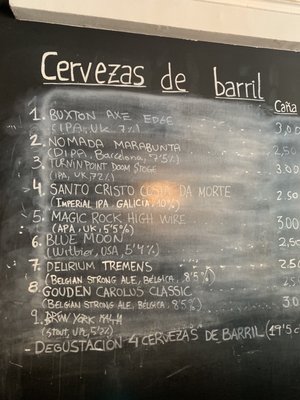 Cervezas de barril
Caña
1. BUXTON AXE EDGE 3,00
(IPA, UK, 7%)
2. NOMADA MARABUNTA 2,50
(DIPA, Barcelona, 7'5%)
3. TURNINPOINT DOOM STOGE 3.00
(IPA, UK, 7'2%)
4. SANTO CRISTO COSTA DA MORTE 2,50
(IMPERIAL IPA GALICIA, 10%)
5. MAGIC ROCK HIGH WIRE 3.00
(APA, UK, 5'5%)
6. BLUE MOON
(Witbier, USA, 5'4%)
7. DELIRIUM TREMENS
(BELGIAN STRONG ALE, BÉLGICA, 8'5%)
8. GOUDEN CAROLUS CLASSIC
(BELGIAN STRONG ALE, BÉLGICA, 8'5%)
9. BREW YORK
(Stout, UK, 5'%)
- DEGUSTACIÓN 4 CERVEZAS DE BARRIL